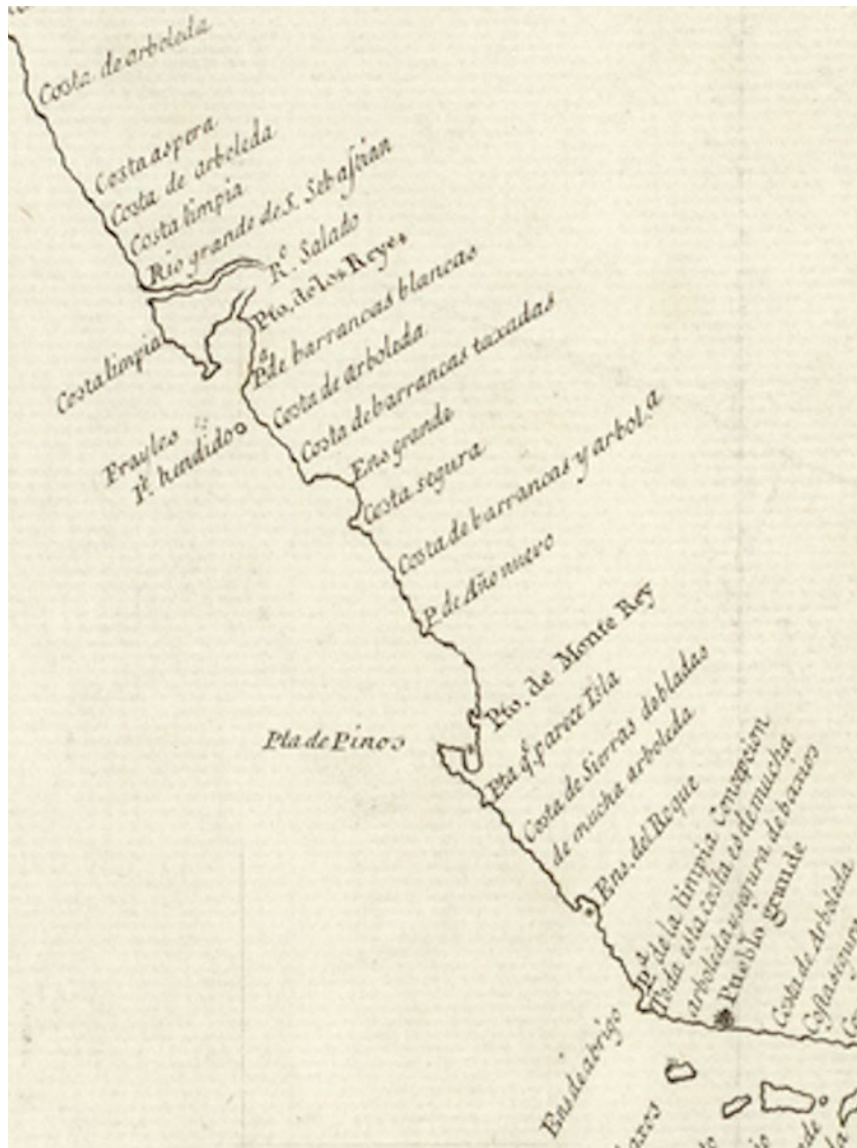 Costa de arboleda
Costa aspera
Costa de arboleda
Costa limpia
Rio grande de S. Sebastian
R.º Salado
Pto. de los Reyes
Costa limpia
P.ª de barrancas blancas
Costa de arboleda
Costa de barrancas taxadas
Frayles
P.º hendido
Ens grande
Costa segura
Costa de barrancas y arbol.ª
P. de Año nuevo
Pto. de Monte Rey
Pta de Pinos
Pta q.º parece Isla
Costa de Sierras dobladas
de mucha arboleda
Ens. del Roque
P.ª de la limpia Concepcion
Toda esta costa es de mucha
arboleda y segura de baxios
Pueblo grande
Costa de Arboleda
Costa segura
Ens de abrigo